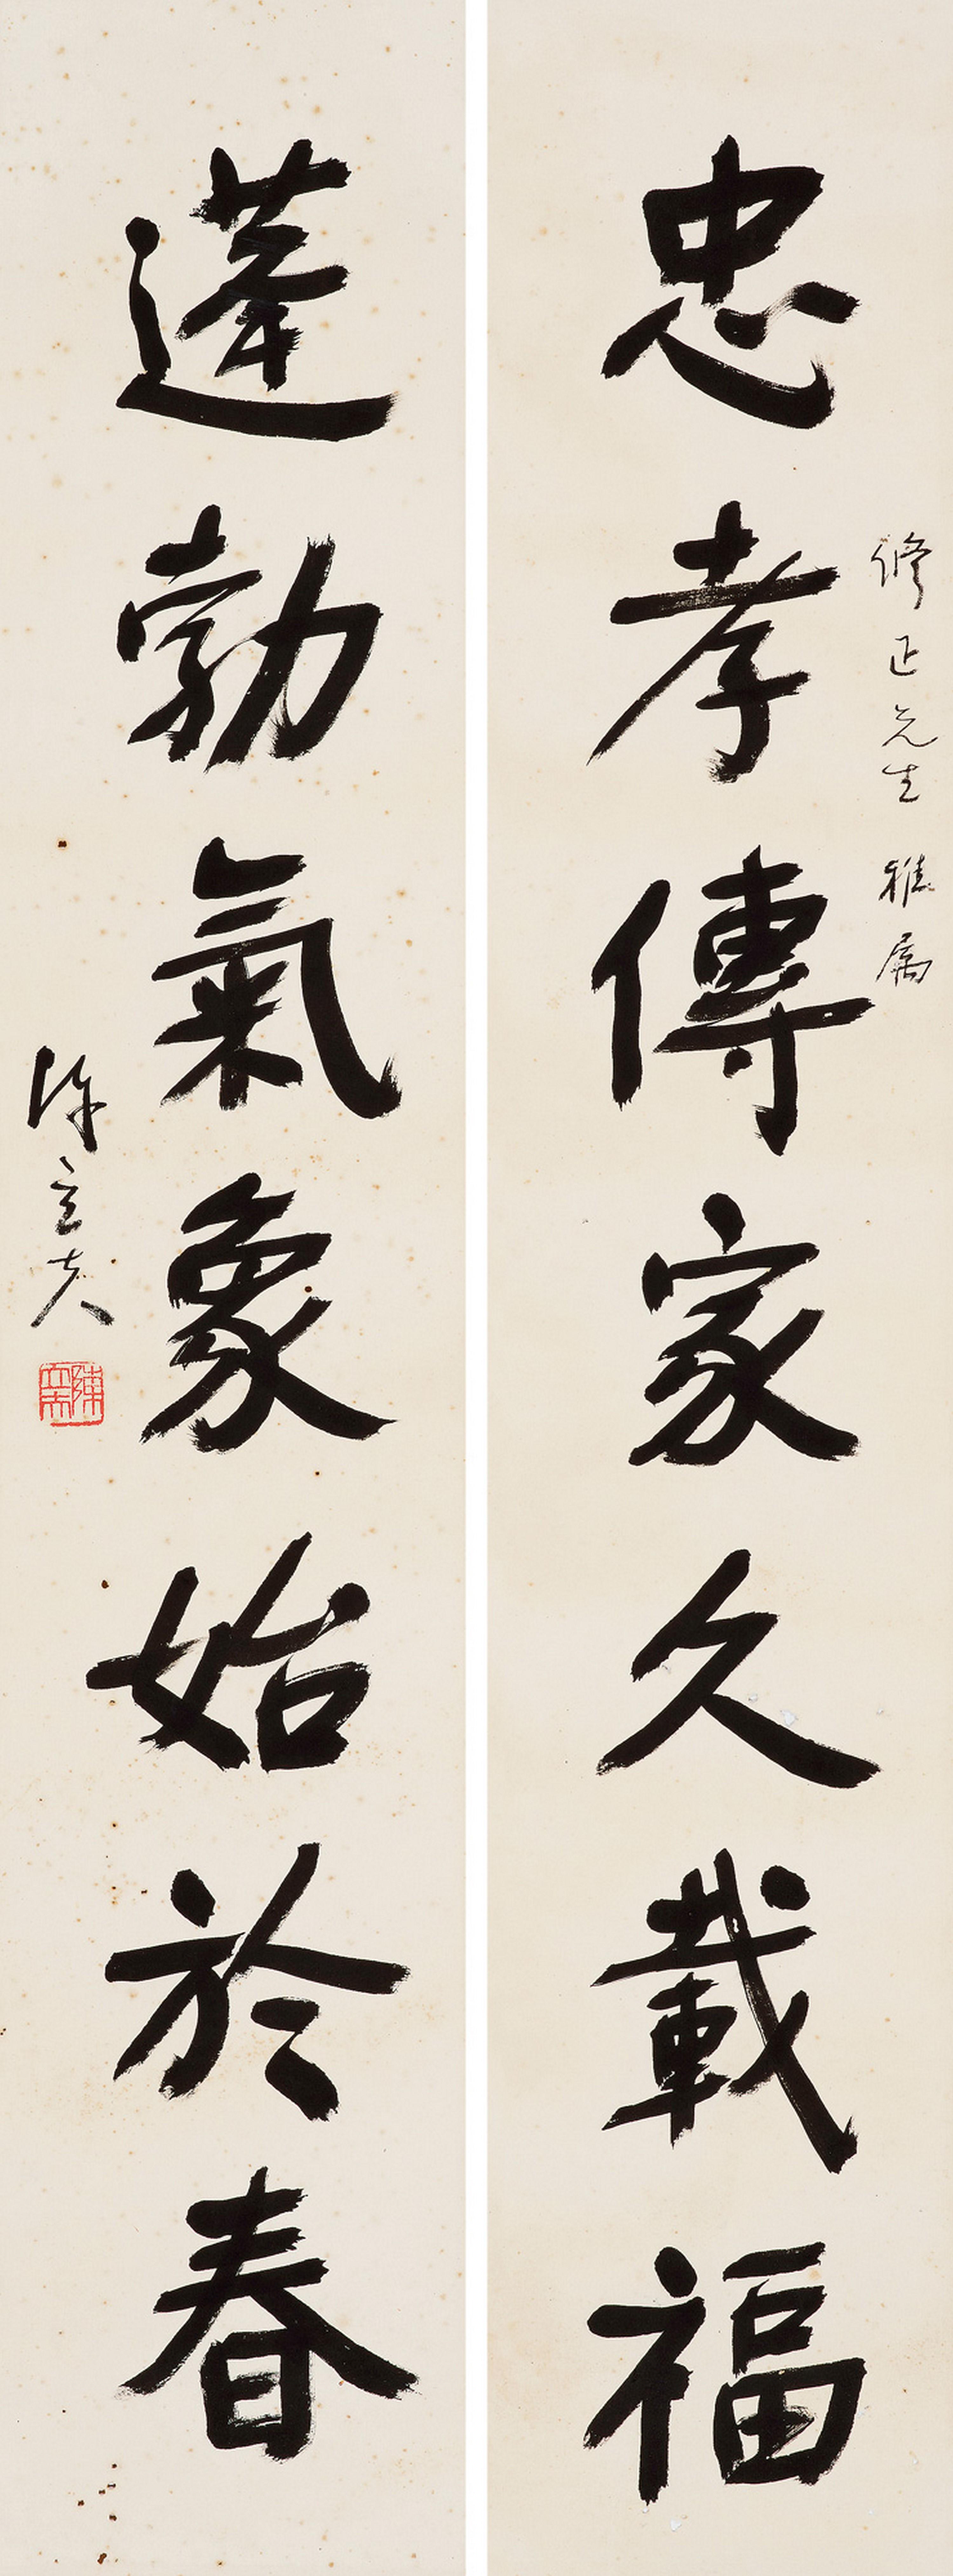 忠孝傳家久載福
修正先生雅属
蓬勃氣象始於春
陳立夫
陳立夫